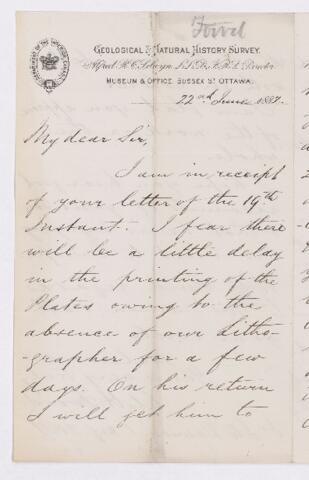 Foord
GEOLOGICAL & NATURAL HISTORY SURVEY.
Alfred R. C. Selwyn, L.L.D., F.R.S., Director
MUSEUM & OFFICE, SUSSEX ST OTTAWA.
22nd June 1882.
My dear Sir,
I am in receipt
of your letter of the 19th
Instant. I fear there
will be a little delay
in the printing of the
Plates owing to the
absence of our Litho-
-grapher for a few
days. On his return
I will get him to